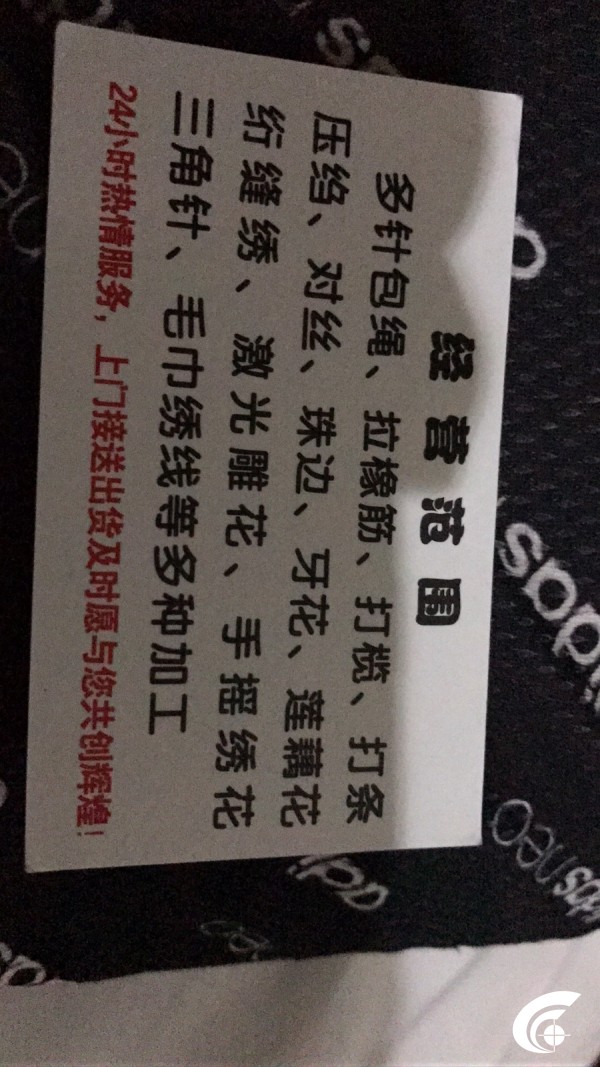 经营范围
多针包绳、拉橡筋、打榄、打条
压绉、对丝、珠边、牙花、莲藕花
绗缝绣、激光雕花、手摇绣花
三角针、毛巾绣线等多种加工
24小时热情服务，上门接送出货及时愿与您共创辉煌！
adidas
adidas neo